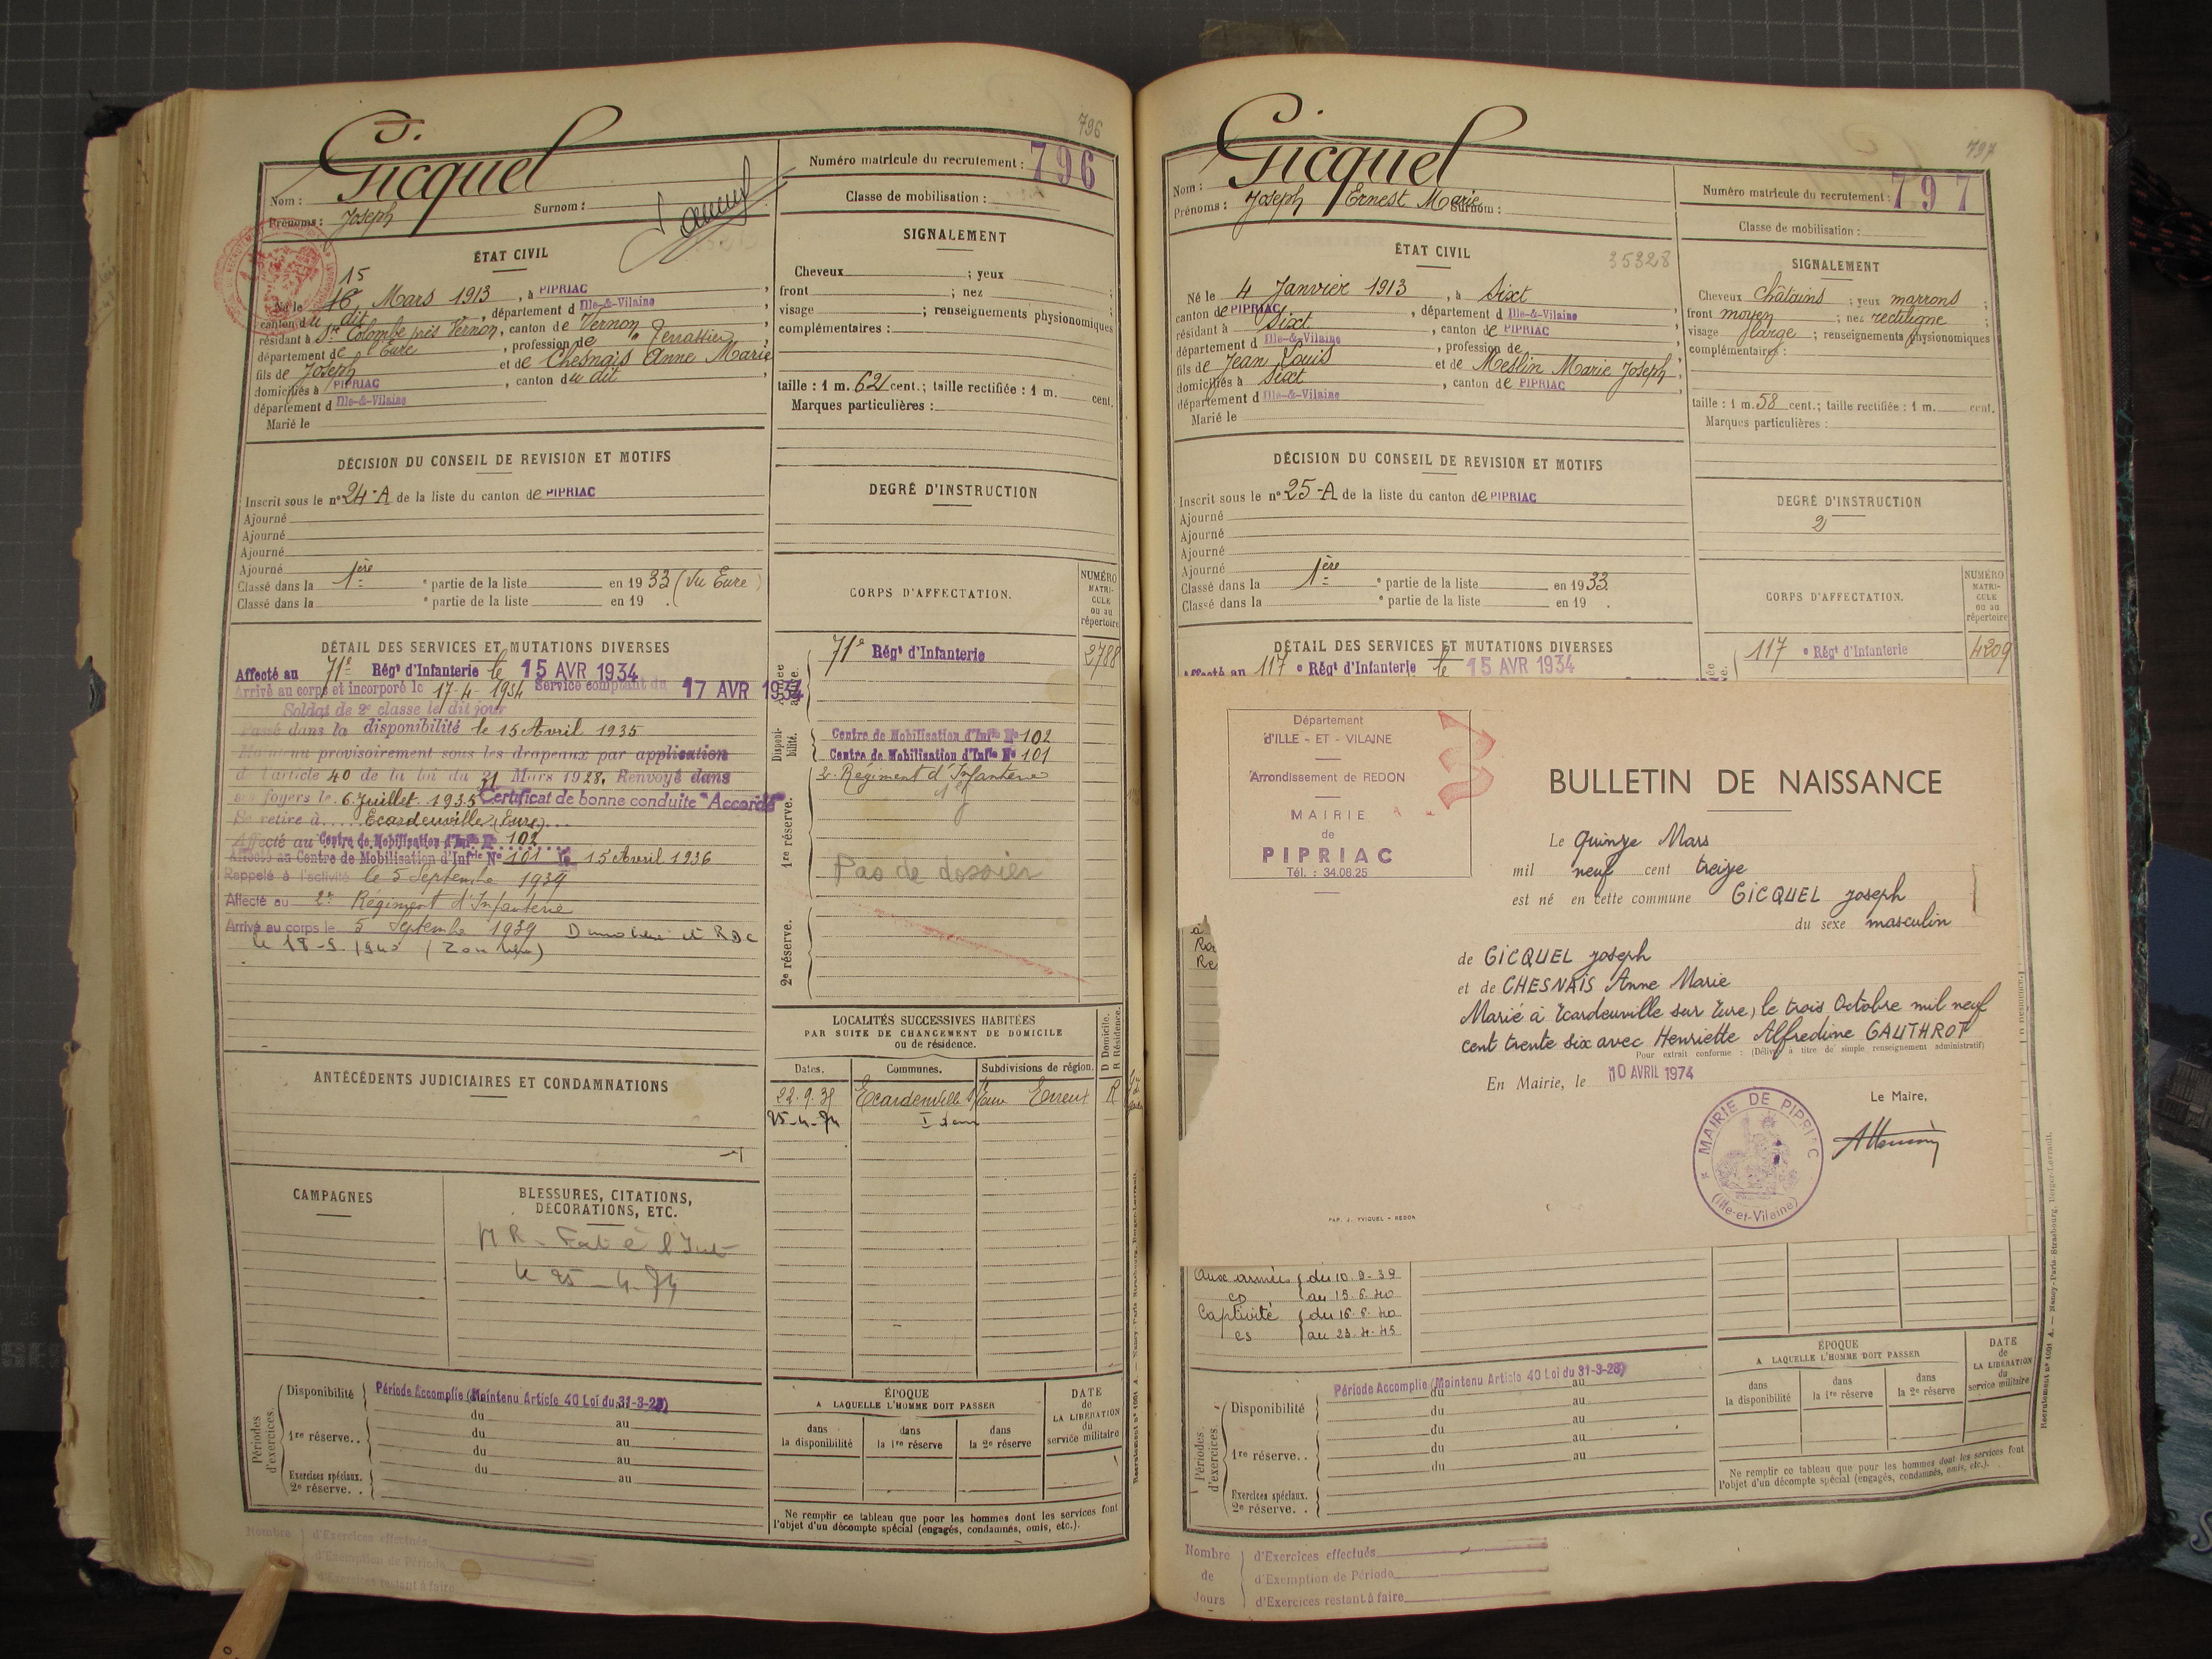 796
Gicquel
Nom :
Surnom :
Prénoms : Joseph
Numéro matricule du recrutement : 796
Classe de mobilisation :
ÉTAT CIVIL
15
Né le 16 Mars 1913, à PIPRIAC,
canton du dit, département d Ille-&-Vilaine,
résidant à Ste Colombe près Vernon, canton de Vernon,
département de l'Eure, profession de Terrassier,
fils de Joseph et de Chesnais Anne Marie
domiciliés à PIPRIAC, canton du dit,
département d Ille-&-Vilaine
Marié le
SIGNALEMENT
Cheveux ; yeux ;
front ; nez ;
visage ; renseignements physionomiques
complémentaires :
taille : 1 m. 62 cent.; taille rectifiée : 1 m. cent.
Marques particulières :
DÉCISION DU CONSEIL DE REVISION ET MOTIFS
Inscrit sous le n° 24-A de la liste du canton de PIPRIAC
Ajourné
Ajourné
Ajourné
Ajourné
Classé dans la 1ère e partie de la liste en 1933 (Vu Eure)
Classé dans la e partie de la liste en 19 .
DEGRÉ D'INSTRUCTION
CORPS D'AFFECTATION.
NUMÉRO
MATRI-
CULE
ou au
répertoire
71e Régt d'Infanterie 2788
Disponi-
bilité.
Centre de Mobilisation d'Infie No 102
Centre de Mobilisation d'Infie No 101
1re réserve.
2e Régiment d'Infanterie
Pas de dossier
2e réserve.
DÉTAIL DES SERVICES ET MUTATIONS DIVERSES
Affecté au 71e Régt d'Infanterie le 15 AVR 1934
Arrivé au corps et incorporé le 17-4-1934 Service comptant du 17 AVR 1934
Soldat de 2e classe le dit jour
Passé dans la disponibilité le 15 Avril 1935
Maintenu provisoirement sous les drapeaux par application
de l'article 40 de la loi du 31 Mars 1928. Renvoyé dans
ses foyers le 6 Juillet 1935 Certificat de bonne conduite "Accordé"
Se retire à Ecardenville (Eure)
Affecté au Centre de Mobilisation d'Infie No 102
Affecté au Centre de Mobilisation d'Infie No 101 le 15 Avril 1936
Rappelé à l'activité le 5 Septembre 1939
Affecté au 2e Régiment d'Infanterie
Arrivé au corps le 5 Septembre 1939
ANTÉCÉDENTS JUDICIAIRES ET CONDAMNATIONS
LOCALITÉS SUCCESSIVES HABITÉES
PAR SUITE DE CHANGEMENT DE DOMICILE
ou de résidence.
D Domicile.
R Résidence.
Dates. Communes. Subdivisions de région.
Ecardenville s/Eure Evreux R
25-4-74 Idem
CAMPAGNES
BLESSURES, CITATIONS,
DÉCORATIONS, ETC.
le 25-4-74
Périodes
d'exercices.
Disponibilité Période Accomplie (Maintenu Article 40 Loi du 31-3-28)
du au
1re réserve.. du au
du au
Exercices spéciaux. du au
2e réserve. .
ÉPOQUE
A LAQUELLE L'HOMME DOIT PASSER
dans
la disponibilité
dans
la 1re réserve
dans
la 2e réserve
DATE
de
LA LIBÉRATION
du
service militaire
Ne remplir ce tableau que pour les hommes dont les services font
l'objet d'un décompte spécial (engagés, condamnés, omis, etc.).
Nombre d'Exercices effectués
de d'Exemption de Période
d'Exercices restant à faire
797
Gicquel
Nom :
Prénoms : Joseph Ernest Marie
Surnom :
Numéro matricule du recrutement : 797
Classe de mobilisation :
ÉTAT CIVIL
35328
Né le 4 Janvier 1913, à Sixt
canton de PIPRIAC, département d Ille-&-Vilaine,
résidant à Sixt, canton de PIPRIAC
département d Ille-&-Vilaine, profession de
fils de Jean Louis et de Meslin Marie Joseph,
domiciliés à Sixt, canton de PIPRIAC,
département d Ille-&-Vilaine
Marié le
SIGNALEMENT
Cheveux châtains ; yeux marrons ;
front moyen ; nez rectiligne ;
visage large ; renseignements physionomiques
complémentaires :
taille : 1 m. 58 cent.; taille rectifiée : 1 m. cent.
Marques particulières :
DÉCISION DU CONSEIL DE REVISION ET MOTIFS
Inscrit sous le n° 25-A de la liste du canton de PIPRIAC
Ajourné
Ajourné
Ajourné
Ajourné
Classé dans la 1ère e partie de la liste en 1933.
Classé dans la e partie de la liste en 19 .
DEGRÉ D'INSTRUCTION
2
CORPS D'AFFECTATION.
NUMÉRO
MATRI-
CULE
ou au
répertoire
117 e Régt d'Infanterie 4209
DÉTAIL DES SERVICES ET MUTATIONS DIVERSES
Affecté au 117 e Régt d'Infanterie le 15 AVR 1934
Département
d'ILLE - ET - VILAINE
Arrondissement de REDON
MAIRIE
de
PIPRIAC
Tél. : 34.08.25
BULLETIN DE NAISSANCE
Le Quinze Mars
mil neuf cent treize
est né en cette commune GICQUEL Joseph
du sexe masculin
de GICQUEL Joseph
et de CHESNAIS Anne Marie
Marié à Ecardenville sur Eure, le trois Octobre mil neuf
cent trente six avec Henriette Alfredine GAUTHROT
Pour extrait conforme : (Délivré à titre de simple renseignement administratif)
En Mairie, le 10 AVRIL 1974
Le Maire,
MAIRIE DE PIPRIAC
(Ille-et-Vilaine)
PAP. J. YVIQUEL - REDON
Aux armées du 10.9.39
au 15.6.40
Captivité du 16.6.40
au 23.4.45
Périodes
d'exercices.
Période Accomplie (Maintenu Article 40 Loi du 31-3-28)
Disponibilité du au
du au
1re réserve.. du au
du au
Exercices spéciaux. du au
2e réserve. .
ÉPOQUE
A LAQUELLE L'HOMME DOIT PASSER
dans
la disponibilité
dans
la 1re réserve
dans
la 2e réserve
DATE
de
LA LIBÉRATION
du
service militaire
Ne remplir ce tableau que pour les hommes dont les services font
l'objet d'un décompte spécial (engagés, condamnés, omis, etc.).
Nombre d'Exercices effectués
de d'Exemption de Période
Jours d'Exercices restant à faire
Recrutement n° 1001 A. — Nancy-Paris-Strasbourg, Berger-Levrault.